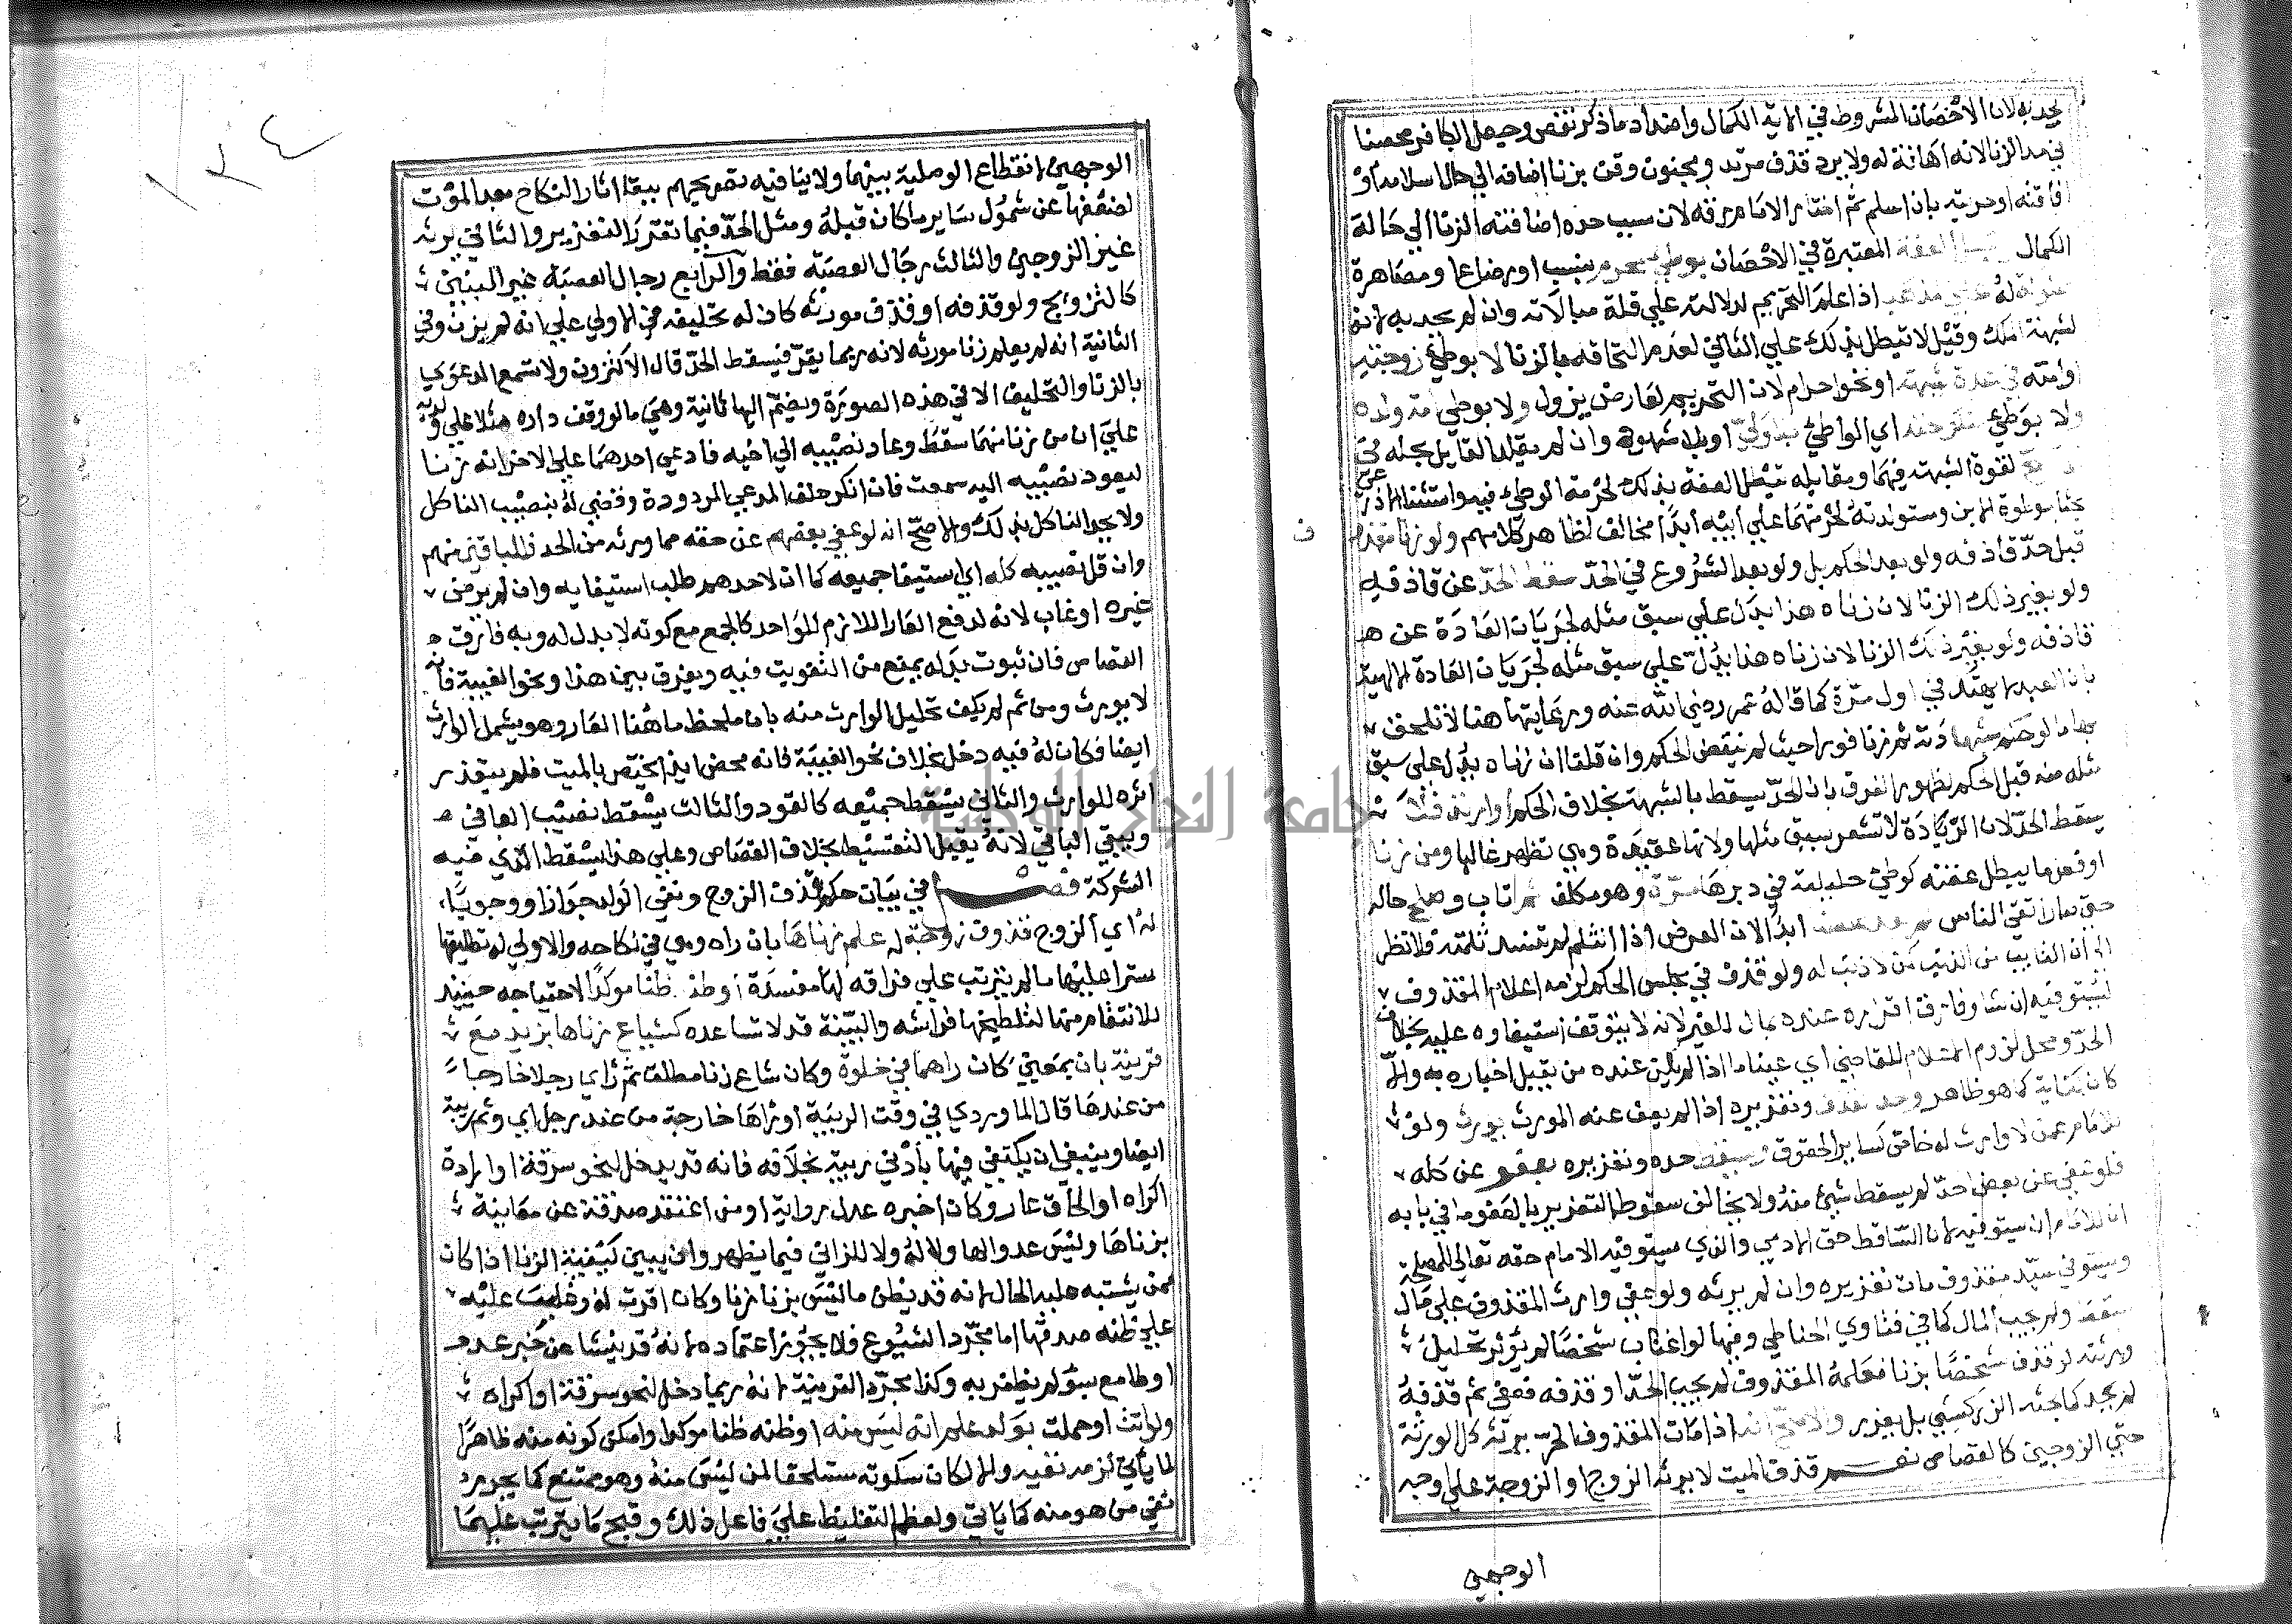 يحد به لان الاحصان المشروط في الاية الكمال واضداد ما ذكر نقص وجعل الكافر محصنا
في حد الزنا لانه اهانة له ولا يرد قذف مرتد ومجنون وقن بزنا اضافه الي حال اسلامه او
افاقته او حريته بان اسلم ثم اختار الامام رقه لان سبب حده اضافته الزنا الي حالة
الكمال العفة المعتبرة في الاحصان بوطئ محرم بنسب او رضاع او مصاهرة
مملوكة له علي مذهب اذا علم التحريم لدلالته علي قلة مبالاته وان لم يحد به لانه
لشبهة الملك وقيل لا تبطل بذلك علي الثاني لعدم التحاقه بالزنا لا بوطئ زوجته
او امته في عدة شبهة او نحو احرام لان التحريم لعارض يزول ولا بوطئ امة ولده
ولا بوطئ منكوحته اي الواطئ بلا ولي او بلا شهود وان لم يقلد القايل بحله في
لقوة الشبهة فيهما ومقابله تبطل العفة بذلك لحرمة الوطئ فيه واستثناء الاذرعي
بحثا موطوة الابن ومستولدته لحرمتهما علي ابيه ابدا مخالف لظاهر كلامهم ولو زنا مقذوف
قبل حد قاذفه ولو بعد الحكم بل ولو بعد الشروع في الحد سقط الحد عن قاذفه
ولو بغير ذلك الزنا لان زناه هذا يدل علي سبق مثله لجريان العادة عن هـ
قاذفه ولو بغير ذلك الزنا لان زناه هذا يدل علي سبق مثله لجريان العادة الالهية
بان العبد لا يهتك في اول مرة كما قاله عمر رضي الله عنه ورعايتها هنا لا تلحق
بها ما لو حكم بشهادته ثم زنا فورا حيث لم ينقض الحكم وان قلنا ان زناه يدل علي سبق
مثله منه قبل الحكم لظهور الفرق بان الحد يسقط بالشبهة بخلاف الحكم او ارتد فلا
يسقط الحد لان الردة لا تشعر بسبق مثلها ولانها عقيدة وهي تظهر غالبا ومن زنا
او فعل ما يبطل عفته كوطئ حليلته في دبرها مرة وهو مكلف ثم تاب وصلح حاله
حتي صار اتقي الناس لم يعد محصنا ابدا لان العرض اذا انثلم لم تنسد ثلمته فلا نظر
الي ان التايب من الذنب كمن لا ذنب له ولو قذف في مجلس الحكم لزمه اعلام المقذوف
ليستوفيه ان شا وفارق اقراره عنده بمال للغير لانه لا يتوقف استيفاوه عليه بخلاف
الحد ومحل لزوم الاعلام للقاضي اي عينا ما اذا لم يكن عنده من يقبل اخباره به والا
كان كفاية كما هو ظاهر وحد قذف وتعزيره اذا لم يعف عنه المورث يورث ولو
للامام عمن لا وارث له خاص كساير الحقوق ويسقط حده وتعزيره بعفو عن كله
فلو عفي عن بعض احد لم يسقط شئ منه ولا يخالف سقوط التعزير بالعفو ما في بابه
ان للامام ان يستوفيه لان الساقط حق الادمي والذي يستوفيه الامام حقه تعالي للمصلحة
ويستوفي سيد مقذوف مات تعزيره وان لم يرثه ولو عفي وارث المقذوف علي مال
سقط ولم يجب المال كما في فتاوي الحناطي وفيها لو اغتاب شخصا لم يؤثر تحليل
ورثته لو قذف شخصا بزنا فعلمه المقذوف لم يجب الحد او قذفه فعفي ثم قذفه
لم يحد كما بحثه الزركشي بل يعزر والاصح انه اذا مات المقذوف الحر يرثه كل الورثة
حتي الزوجين كالقصاص نعم قذف الميت لا يرثه الزوج او الزوجة علي اوجه
الوجهين
١٣٤
الوجهين لانقطاع الوصلية بينهما ولا ينافيه تصريحهم ببقا اثار النكاح بعد الموت
لضعفها عن شمول ساير ما كان قبله ومثل الحد فيما تقرر التعزير والثاني يرثه
غير الزوجين والثالث رجال العصبة فقط والرابع رجال العصبة غير البنين
كالتزويج ولو قذفه او قذف مورثه كان له تحليفه في الاولي علي انه لم يزن وفي
الثانية انه لم يعلم زنا مورثه لانه ربما يقر فيسقط الحد قال الاكثرون ولا تسمع الدعوي
بالزنا والتحليف الا في هذه الصورة ويضم اليها ثانية وهي ما لو وقف داره مثلا علي ولديه
علي ان من زنا منهما سقط وعاد نصيبه الي اخيه فادعي احدهما علي الاخر انه زنا
ليعود نصيبه اليه سمعت فان انكر حلف المدعي المردودة وقضي له بنصيب الناكل
ولا يحد الناكل بذلك والاصح انه لو عفي بعضهم عن حقه مما ورثه من الحد فللباقين منهم
وان قل نصيبه كله اي استيفا جميعه كما ان لاحدهم طلب استيفايه وان لم يرض
غيره او غاب لانه لدفع العار اللازم للواحد كالجمع مع كونه لا بدل له وبه فارق
القصاص فان ثبوت بدله يمنع من التفويت فيه ويفرق بين هذا ونحو الغيبة فانه
لا يورث ومن ثم لم يكف تحليل الوارث منه بان ملحظ ما هنا العار وهو يشمل الوارث
ايضا فكان له فيه دخل بخلاف نحو الغيبة فانه محض ايذا يختص بالميت فلم يتعد
اثره للوارث والثاني يسقط جميعه كالقود والثالث يسقط نصيب العافي
ويبقي الباقي لانه يقبل التقسيط بخلاف القصاص وعلي هذا يسقط الذي فيه
الشركة فصل في بيان حكم قذف الزوج ونفي الولد جوازا ووجوبا
له اي الزوج قذف زوجة له علم زناها بان راه وهي في نكاحه والاولي له تطليقها
سترا عليها ما لم يترتب علي فراقه لها مفسدة او ظنه ظنا موكدا لاحتياجه حينيذ
للانتقام منها لتلطيخها فراشه والبينة قد لا تساعده كشياع زناها بزيد مع
قرينة بان بمعني كان راهما في خلوة وكان شاع زنا مطلق ثم راي رجلا خارجا
من عندها قال الماوردي في وقت الريبة او راها خارجة من عند رجل اي وثم ريبة
ايضا وينبغي ان يكتفي فيها بادني ريبة بخلافه فانه قد يدخل لنحو سرقة او ارادة
اكراه او الحاق عار وكان اخبره عدل رواية او من اعتقد صدقه عن معاينة
بزناها وليس عدوا لها ولا له ولا للزاني فيما يظهر وان يبين كيفية الزنا اذا كان
ممن يشتبه عليه الحال لانه قد يظن ما ليس بزنا زنا وكان اقرت له وغلب عليه
علي ظنه صدقها اما مجرد الشيوع فلا يجوز اعتماده لانه قد ينشا عن خبر عدو
او طامع بسؤ لم يظفر به وكذا مجرد القرينة لانه ربما دخل لنحو سرقة او اكراه
ولو اتت او حملت بولد علم انه ليس منه او ظنه ظنا موكدا وامكن كونه منه ظاهرا
لما ياتي لزمه نفيه والا لكان سكوته مستلحقا لمن ليس منه وهو ممتنع كما يحرم
نفي من هو منه كما ياتي ولعظم التغليظ علي فاعل ذلك وقبح ما يترتب عليهما
جامعة النجاح الوطنية